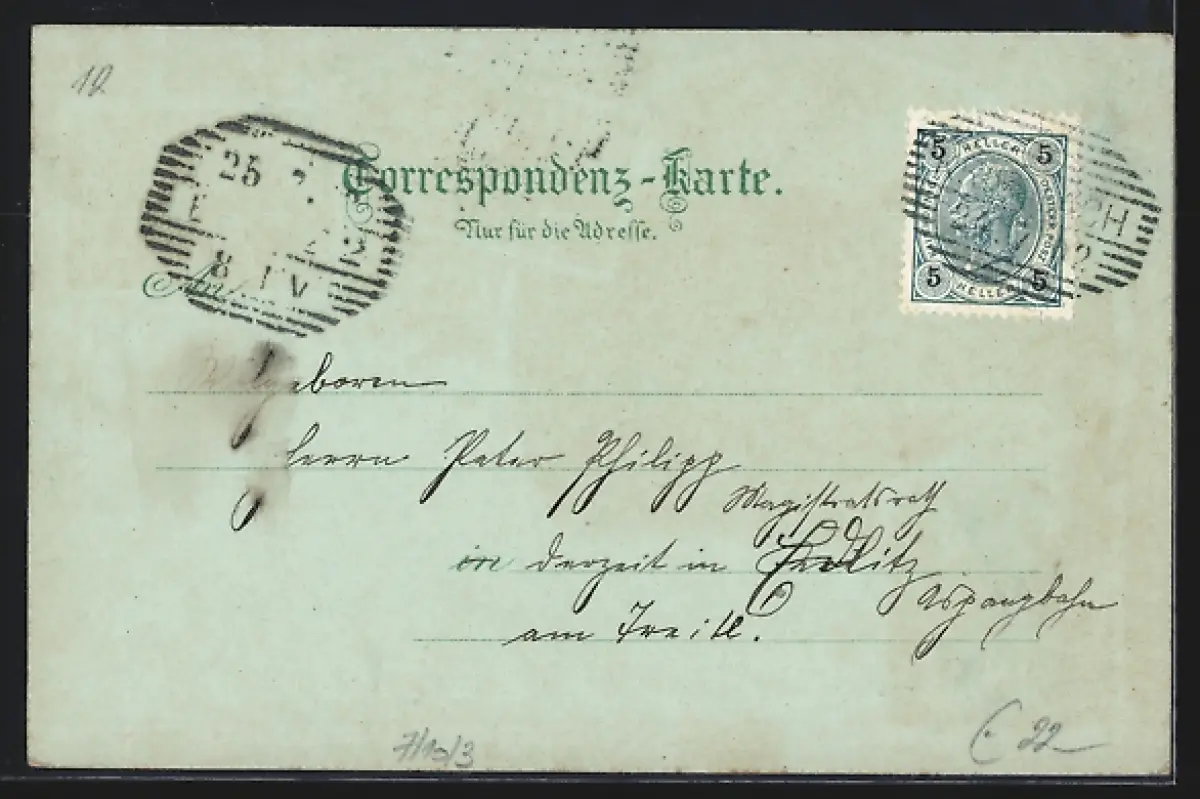 10
25
Correspondenz-Karte.
Nur für die Adresse.
8 IV
5 HELLER 5
5 HELLER 5
CH
2
An
Wolgeboren
Herrn Peter Philipp
Magistratsrath
in derzeit in Edlitz
Aspangbahn
am
7/10/3
22